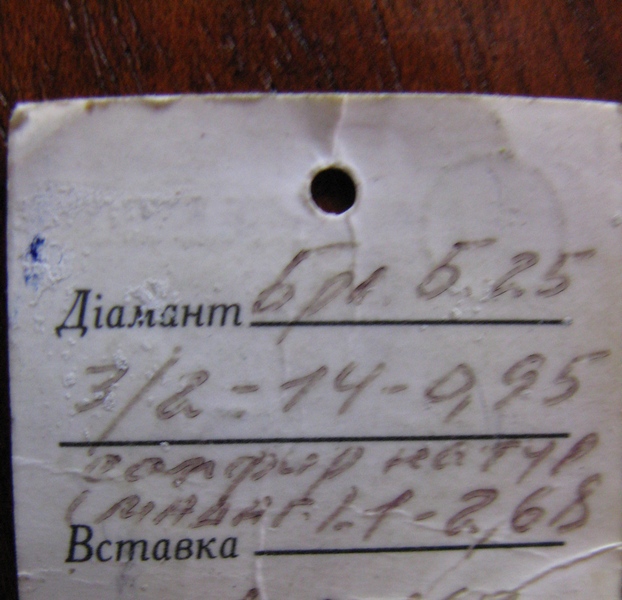 Діамант Бр Б.25
3/2 = 14 - 0,95
сапфир натур
1 - 2,68
Вставка